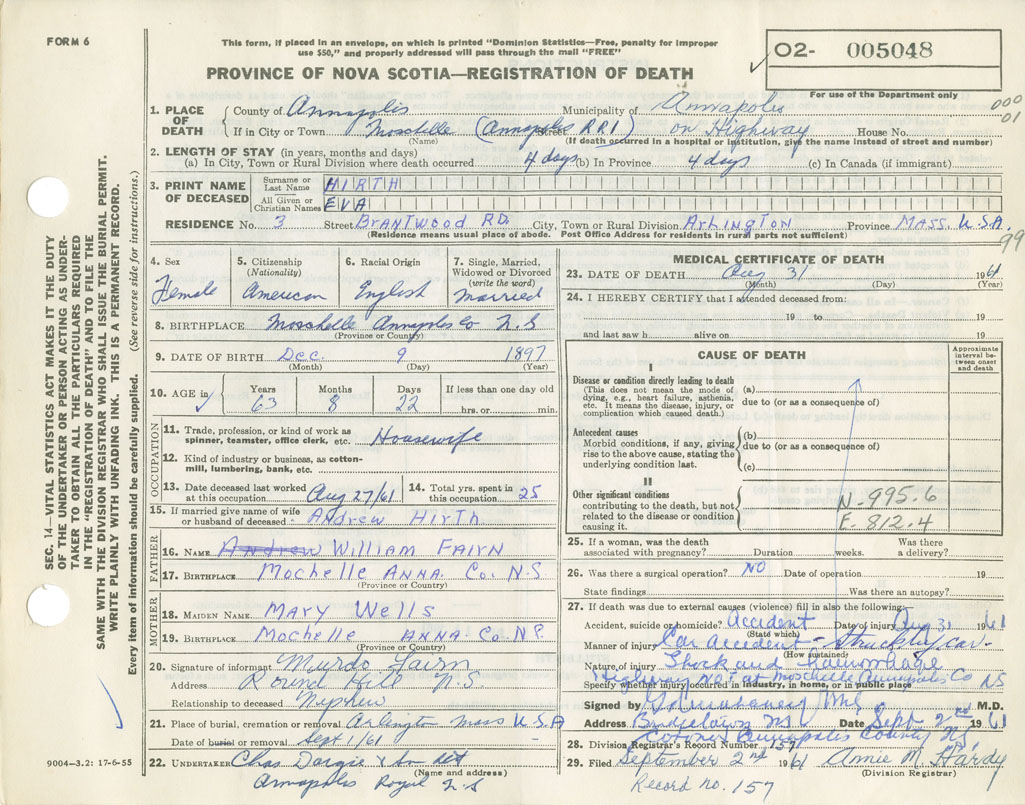 FORM 6
This form, if placed in an envelope, on which is printed "Dominion Statistics—Free, penalty for improper
use $50," and properly addressed will pass through the mail "FREE"
PROVINCE OF NOVA SCOTIA—REGISTRATION OF DEATH
02- 005048
For use of the Department only
000
01
1. PLACE OF DEATH
County of Annapolis Municipality of Annapolis
If in City or Town Mosshelle (Annapolis R.R.1) Street on Highway House No.
(Name) (If death occurred in a hospital or institution, give the name instead of street and number)
2. LENGTH OF STAY (in years, months and days)
(a) In City, Town or Rural Division where death occurred 4 days (b) In Province 4 days (c) In Canada (if immigrant)
3. PRINT NAME OF DECEASED
Surname or Last Name HIRTH
All Given or Christian Names EVA
RESIDENCE No. 3 Street BRANTWOOD RD. City, Town or Rural Division ARLINGTON Province MASS. U.S.A.
(Residence means usual place of abode. Post Office Address for residents in rural parts not sufficient)
99
4. Sex
Female
5. Citizenship (Nationality)
American
6. Racial Origin
English
7. Single, Married, Widowed or Divorced (write the word)
Married
8. BIRTHPLACE Mosshelle Annapolis Co N.S
(Province or Country)
9. DATE OF BIRTH Dec. 9 1897
(Month) (Day) (Year)
10. AGE in Years 63 Months 8 Days 22 If less than one day old hrs. or min.
OCCUPATION
11. Trade, profession, or kind of work as spinner, teamster, office clerk, etc. Housewife
12. Kind of industry or business, as cotton-mill, lumbering, bank, etc.
13. Date deceased last worked at this occupation Aug 27/61 14. Total yrs. spent in this occupation 25
15. If married give name of wife or husband of deceased Andrew Hirth
FATHER
16. NAME Andrew William Fairn
17. BIRTHPLACE Mochelle Anna. Co. N.S
(Province or Country)
MOTHER
18. MAIDEN NAME Mary Wells
19. BIRTHPLACE Mochelle Anna Co N.S.
(Province or Country)
20. Signature of informant Murdo Fairn
Address Round Hill N.S
Relationship to deceased Nephew
21. Place of burial, cremation or removal Arlington Mass U.S.A
Date of burial or removal Sept 1/61
22. UNDERTAKER Chas Dargie & Son Ltd
(Name and address)
Annapolis Royal N.S
MEDICAL CERTIFICATE OF DEATH
23. DATE OF DEATH Aug 31 1961
(Month) (Day) (Year)
24. I HEREBY CERTIFY that I attended deceased from:
19 to 19
and last saw h alive on 19
CAUSE OF DEATH
Approximate interval between onset and death
I
Disease or condition directly leading to death
(This does not mean the mode of dying, e.g., heart failure, asthenia, etc. It means the disease, injury, or complication which caused death.)
(a)
due to (or as a consequence of)
Antecedent causes
Morbid conditions, if any, giving rise to the above cause, stating the underlying condition last.
(b)
due to (or as a consequence of)
(c)
II
Other significant conditions
contributing to the death, but not related to the disease or condition causing it.
N-995.6
E-812.4
25. If a woman, was the death associated with pregnancy? Duration weeks. Was there a delivery?
26. Was there a surgical operation? No Date of operation 19
State findings Was there an autopsy?
27. If death was due to external causes (violence) fill in also the following:
Accident, suicide or homicide? Accident Date of injury Aug 31 1961
(State which)
Manner of injury Car accident - Struck by car
(How sustained)
Nature of injury Shock and haemorrhage
Highway No 1 at Moschelle Annapolis Co NS
Specify whether injury occurred in industry, in home, or in public place
Signed by M.D.
Address Bridgetown N.S. Date Sept 2nd 1961
Coroner Annapolis County N.S.
28. Division Registrar's Record Number 157
29. Filed September 2nd 1961 Annie M. Hardy
(Division Registrar)
Record no. 157
SEC. 14—VITAL STATISTICS ACT MAKES IT THE DUTY
OF THE UNDERTAKER OR PERSON ACTING AS UNDER-
TAKER TO OBTAIN ALL THE PARTICULARS REQUIRED
IN THE "REGISTRATION OF DEATH" AND TO FILE THE
SAME WITH THE DIVISION REGISTRAR WHO SHALL ISSUE THE BURIAL PERMIT.
WRITE PLAINLY WITH UNFADING INK. THIS IS A PERMANENT RECORD.
Every item of information should be carefully supplied. (See reverse side for instructions.)
9004—3.2: 17-6-55